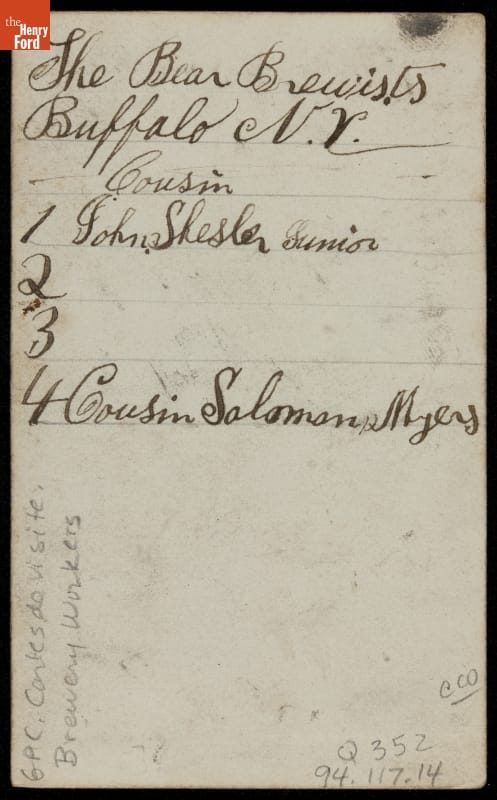 the
Henry
Ford
The Bear Brewists
Buffalo N.Y.
Cousin
1 John, Shesler Junior
2
3
4 Cousin Saloman, Myers
6PC. Cartes de visite.
Brewery Workers
cco
Q 352
94.117.14